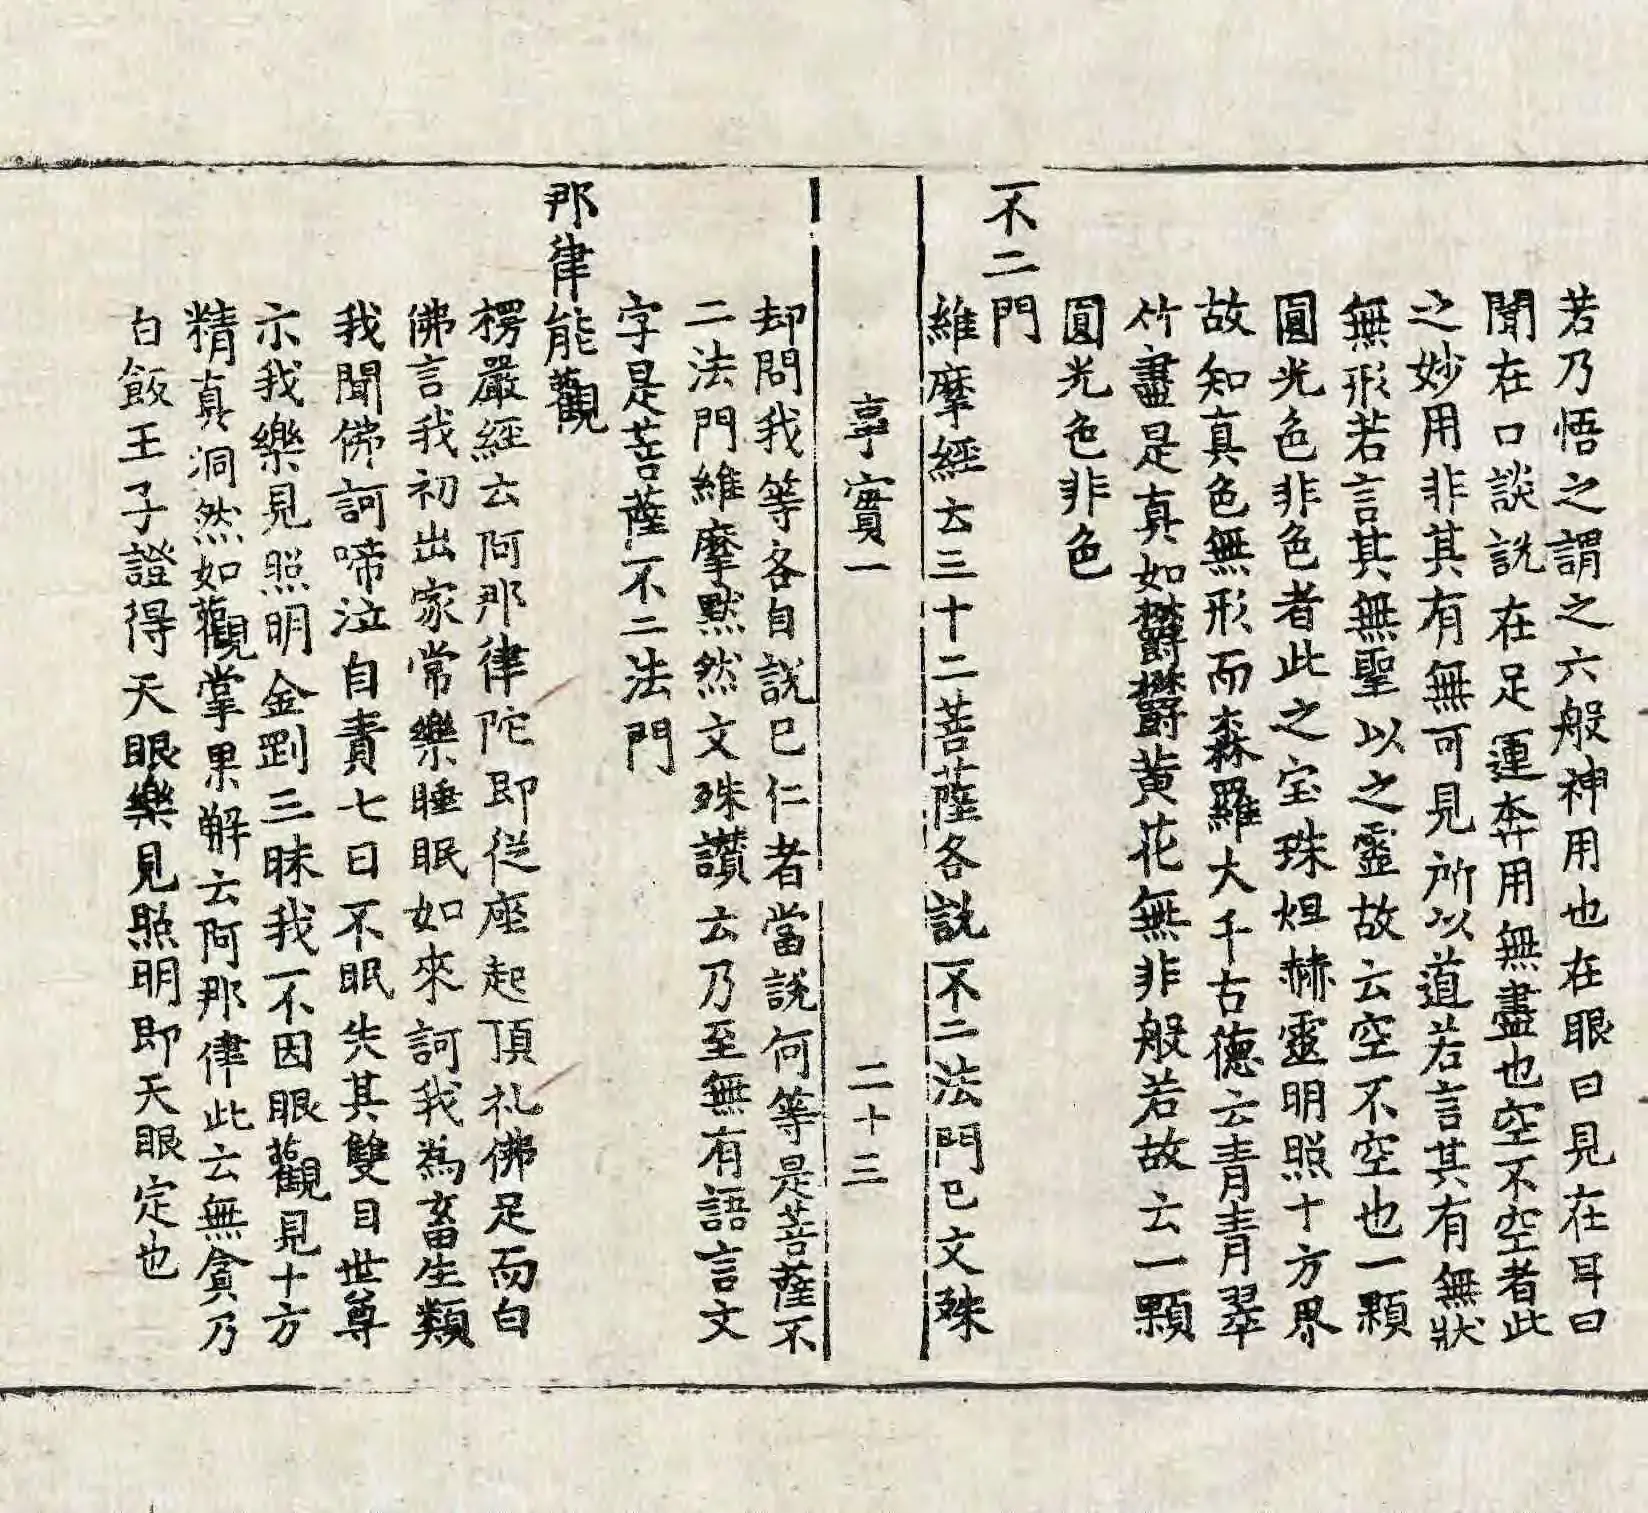 若乃悟之謂之六般神用也在眼曰見在耳曰
聞在口談說在足運奔用無盡也空不空者此
之妙用非其有無可見所以道若言其有無狀
無形若言其無聖以之靈故云空不空也一顆
圓光色非色者此之宝珠烜赫靈明照十方界
故知真色無形而森羅大千古德云青青翠
竹盡是真如欝欝黃花無非般若故云一顆
圓光色非色
不二門
維摩經云三十二菩薩各說不二法門已文殊
事實一 二十三
却問我等各自說已仁者當說何等是菩薩不
二法門維摩默然文殊讚云乃至無有語言文
字是菩薩不二法門
那律能觀
楞嚴經云阿那律陀即從座起頂礼佛足而白
佛言我初出家常樂睡眠如來訶我為畜生類
我聞佛訶啼泣自責七日不眠失其雙目世尊
示我樂見照明金剛三昧我不因眼觀見十方
精真洞然如觀掌果解云阿那律此云無貪乃
白飯王子證得天眼樂見照明即天眼定也